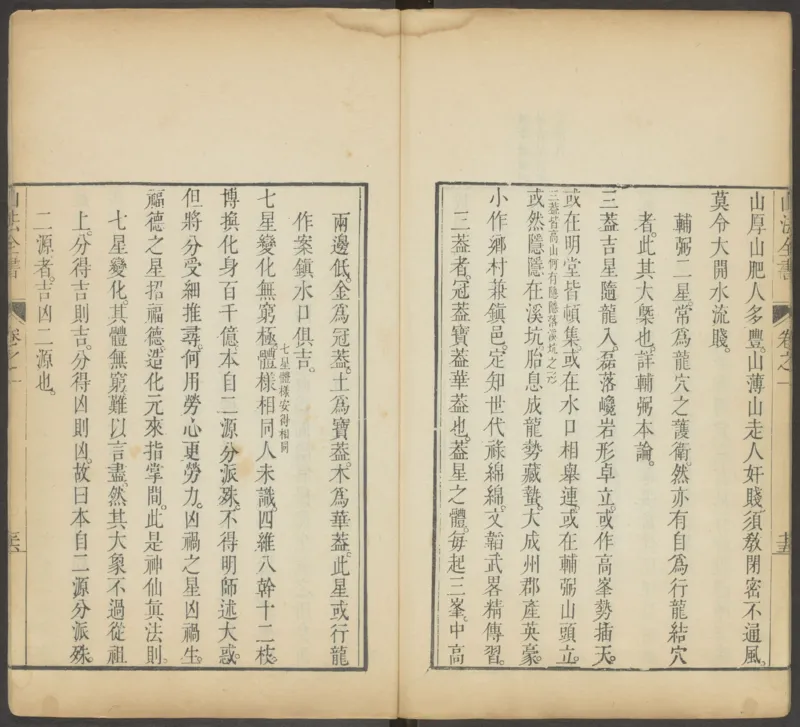 山厚山肥人多豐。山薄山走人奸賤。須教閉密不通風。
莫令大開水流賤。
輔弼二星。常爲龍穴之護衛。然亦有自爲行龍結穴
者。此其大槩也。詳輔弼本論。
三葢吉星隨龍入。磊落巉岩形卓立。或作高峯勢插天。
或在明堂皆頓集。或在水口相舉連。或在輔弼山頭立。
三葢皆高山何有隱隱落溪坑之穴
或然隱隱在溪坑。胎息成龍勢藏蟄。大成州郡產英豪。
小作鄉村兼鎭邑。定知世代祿綿綿。文韜武畧精傳習。
三葢者。冠葢寶葢華葢也。葢星之體。每起三峯。中高
兩邊低。金爲冠葢。土爲寶葢。木爲華葢。此星或行龍
作案鎭水口俱吉。
七星體樣安得相同
七星變化無窮極。體樣相同人未識。四維八幹十二枝。
博換化身百千億。本自二源分派殊。不得明師述大惑。
但將分受細推尋。何用勞心更勞力。凶禍之星凶禍生。
福德之星招福德。造化元來指掌間。此是神仙眞法則。
七星變化。其體無窮。難以言盡。然其大象不過從祖
上。分得吉則吉。分得凶則凶。故曰本自二源分派殊。
二源者。吉凶二源也。
山法全書
卷之一